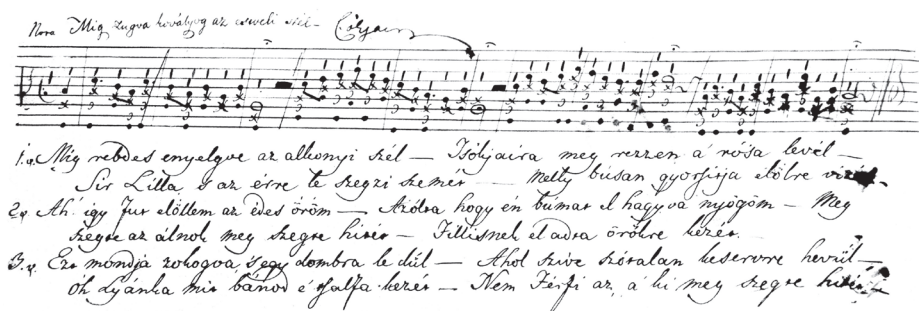 Nota Mig zugva bövöljög az eszveli szél –
1. v. Míg rebdes enyelgve az alkonyi szél – Tsókjaira meg rezzen á rósa levél –
Sir Lilla, s az érre le szegzi szemét – melly búsan gyorsitja elölre
2. v. Ah! igy fut előllem az édes öröm – Azólta hogy én búmat el hagyva nyögöm – Meg
szegte az álnok meg szegte hitét – Fillisnek el adta örökre kezét –
3. v. Ezt mondja zokogva, s egy dombra le dül – Ahol szive szótalan keservre hevül –
óh Lyánka mit bánod é tsalfa kezét – Nem Férfi az, á ki meg szegte hitét –